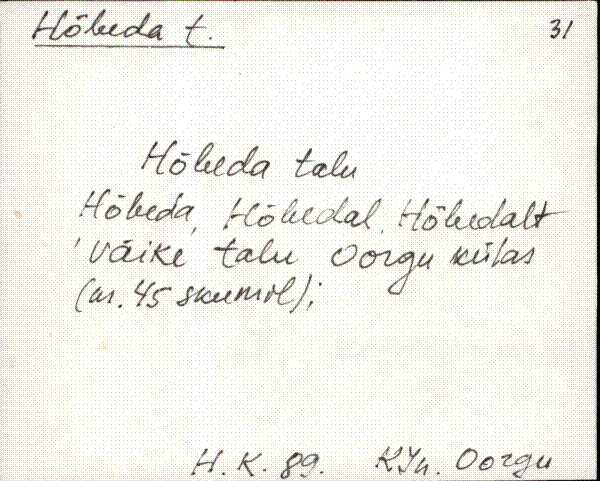 Hõbeda t. 31
Hõbeda talu
Hõbeda, Hõbedal, Hõbedalt
väike talu Oorgu külas
(nr. 45 skeemil);
H. K. 89. KJn. Oorgu